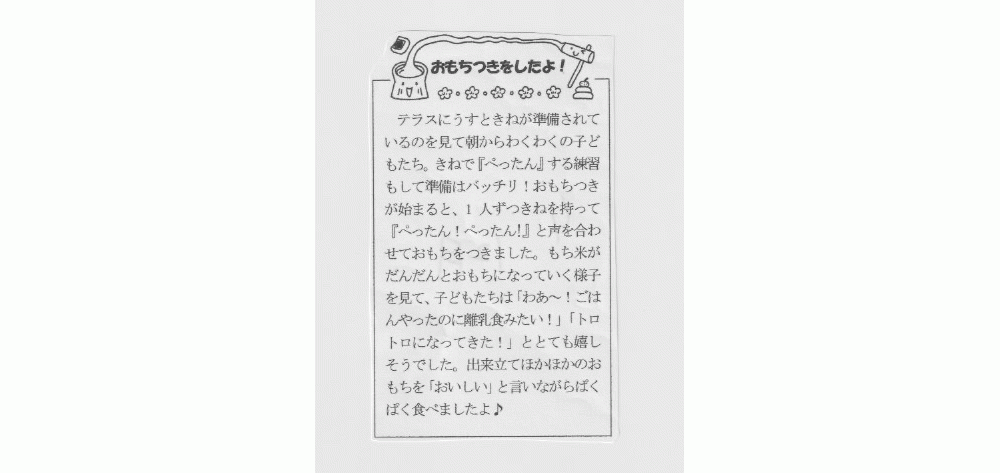 おもちつきをしたよ！
テラスにうすときねが準備されて
いるのを見て朝からわくわくの子ど
もたち。きねで『ぺったん』する練習
もして準備はバッチリ！おもちつき
が始まると、1 人ずつきねを持って
『ぺったん！ぺったん!』と声を合わ
せておもちをつきました。もち米が
だんだんとおもちになっていく様子
を見て、子どもたちは「わあ～！ごは
んやったのに離乳食みたい！」「トロ
トロになってきた！」ととても嬉し
そうでした。出来立てほかほかのお
もちを「おいしい」と言いながらぱく
ぱく食べましたよ♪